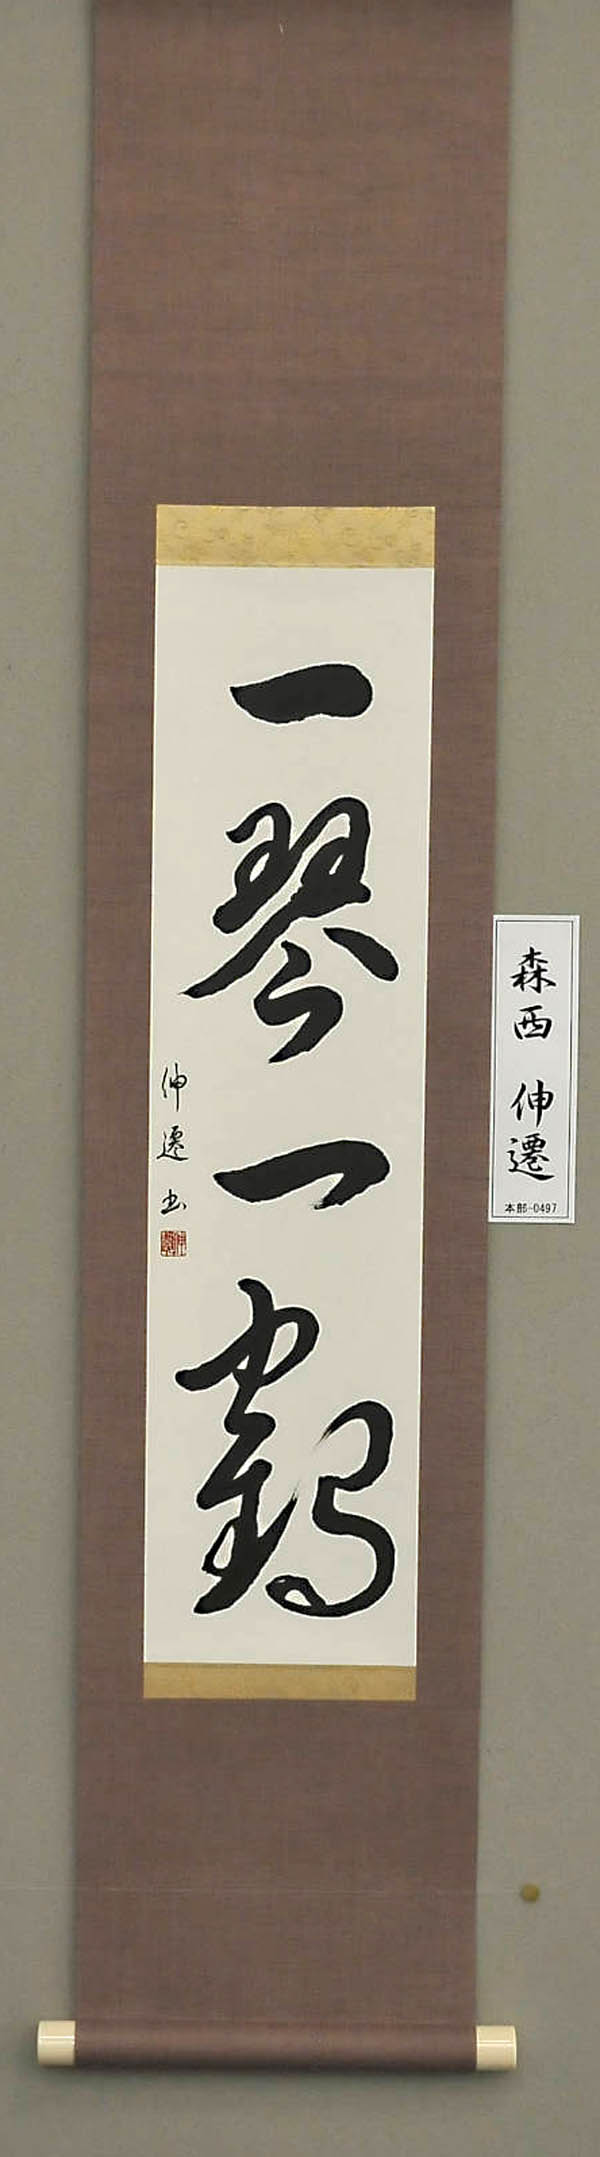 一琴一鶴
伸遷書
森西 伸遷
本部-0497